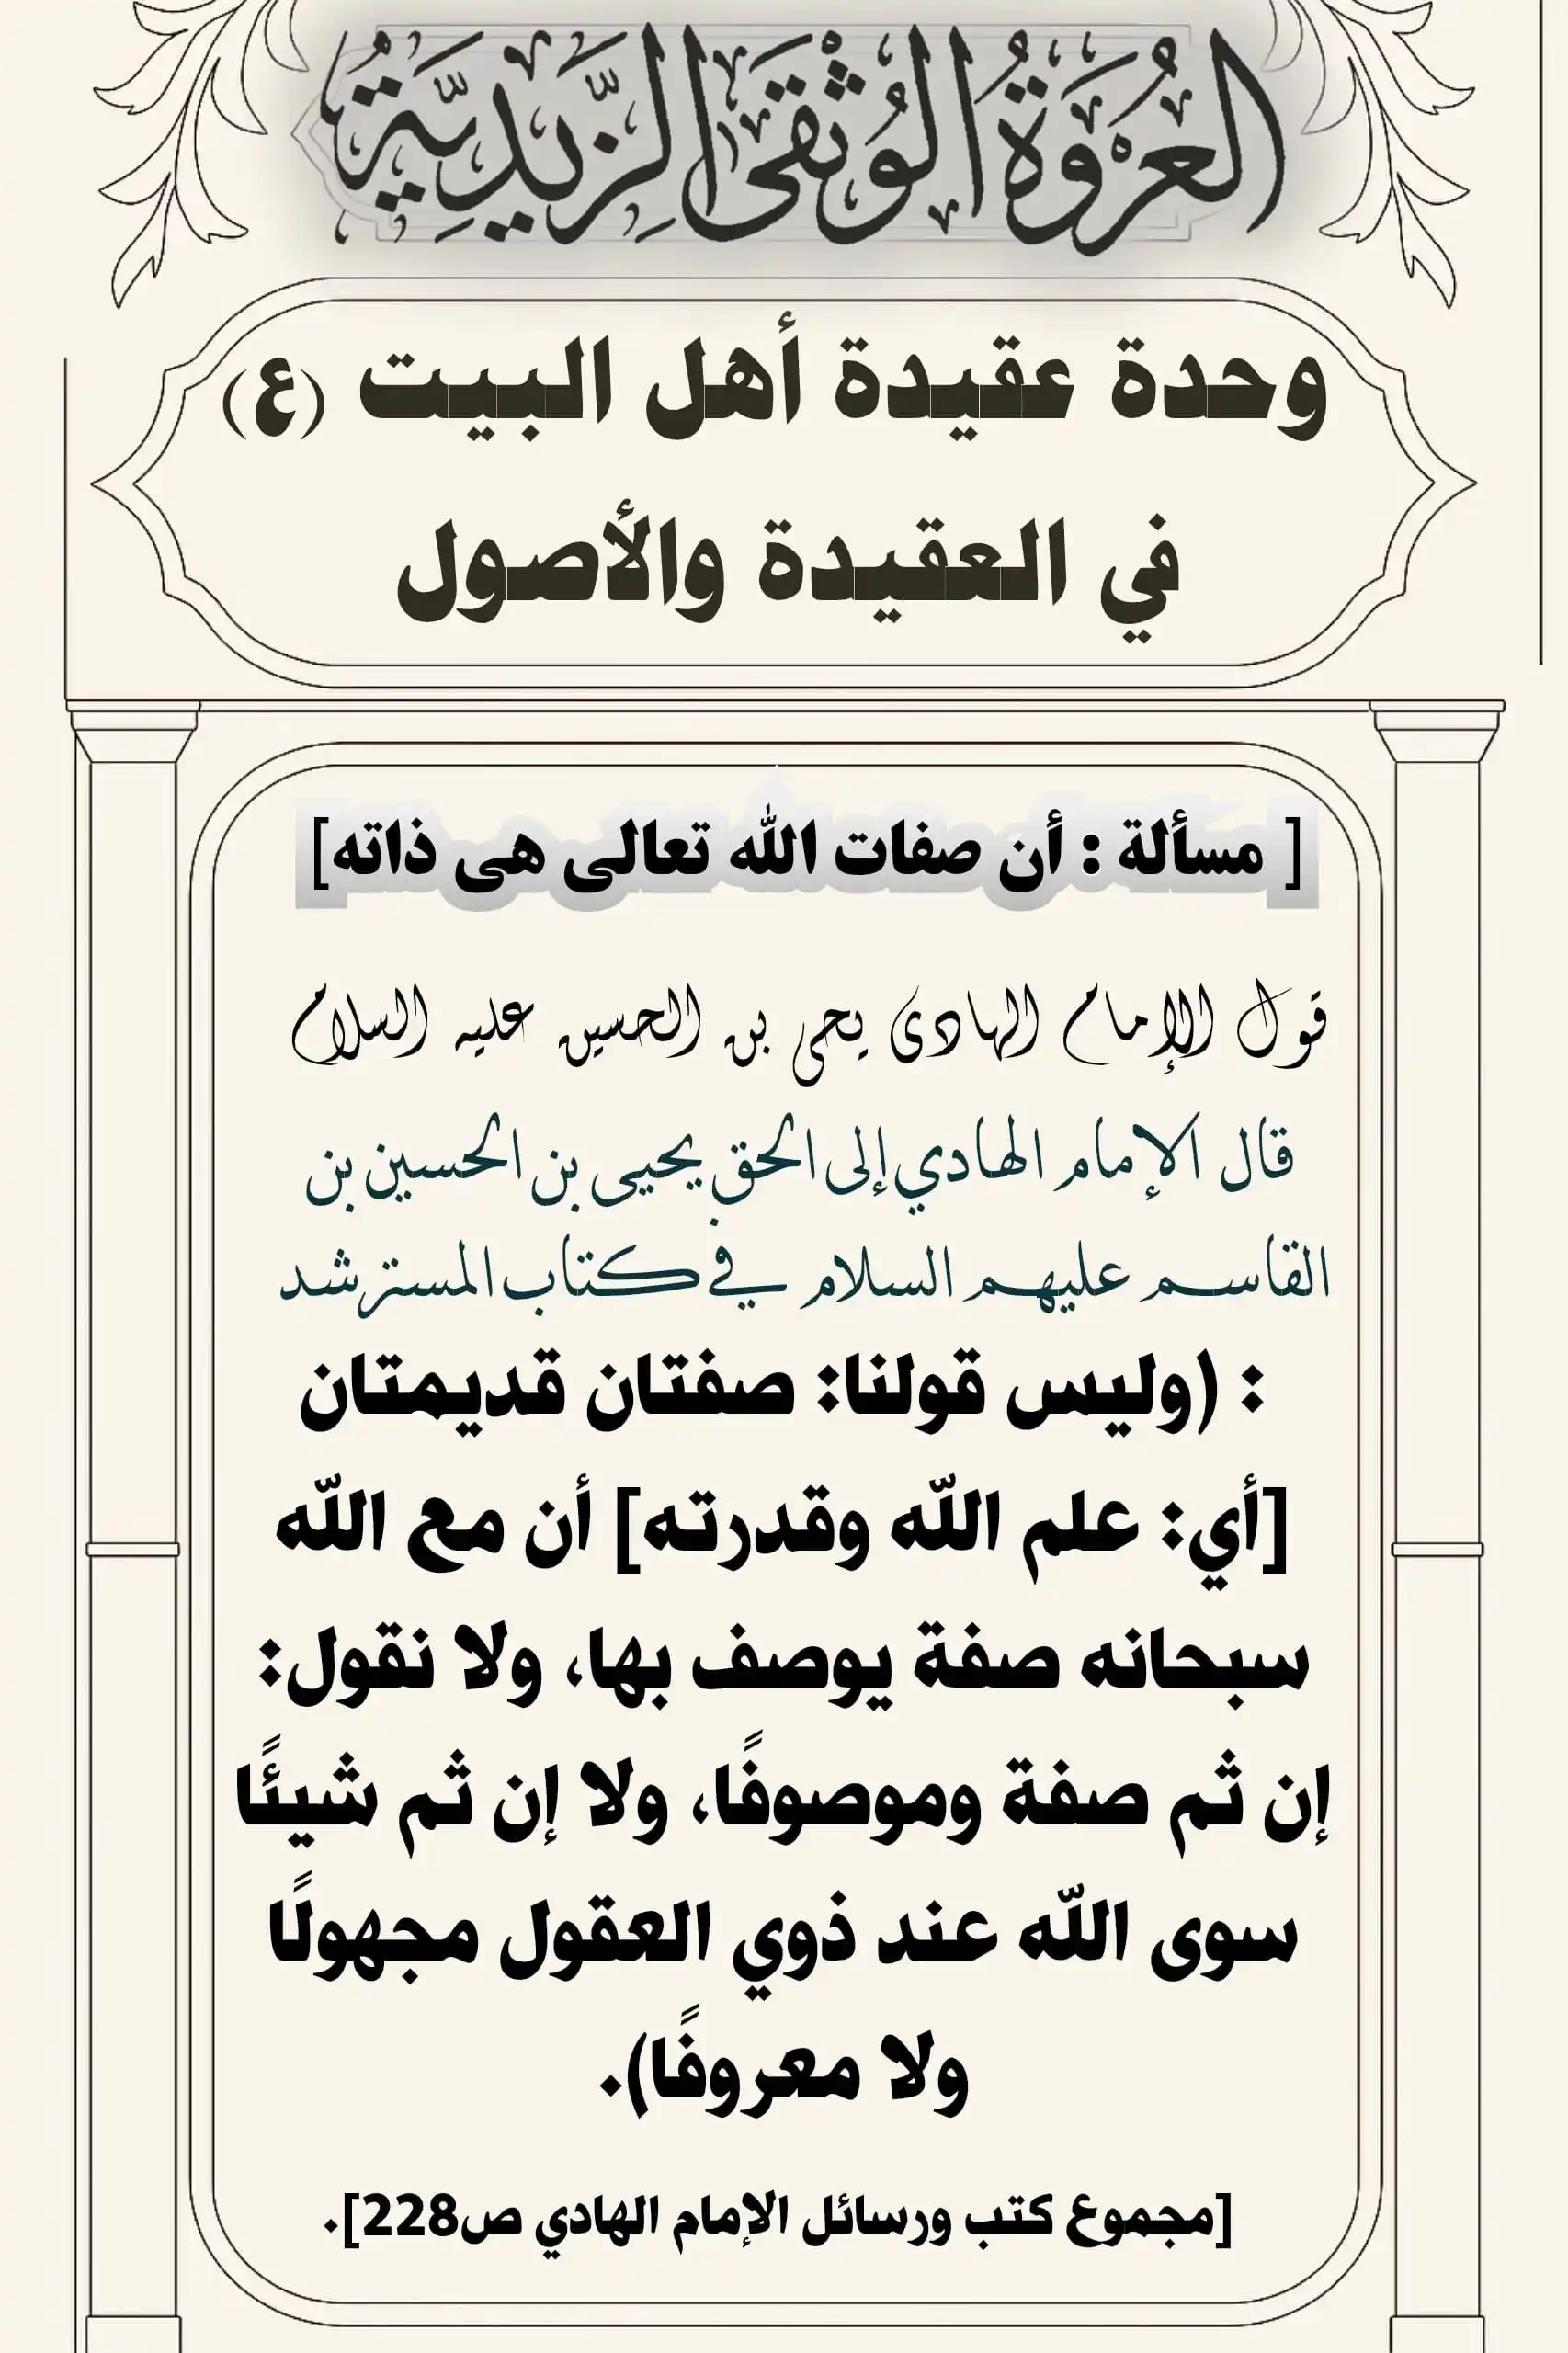 العُرْوَةُ الوُثْقَى الزَّيْدِيَّةُ
وحدة عقيدة أهل البيت (ع)
في العقيدة والأصول
[ مسألة : أن صفات الله تعالى هى ذاته]
قول الإمام الهادى يحى بن الحسين عليه السلام
قال الإمام الهادي إلى الحق يحيى بن الحسين بن
القاسم عليهم السلام في كتاب المسترشد
: (وليس قولنا: صفتان قديمتان
[أي: علم الله وقدرته] أن مع الله
سبحانه صفة يوصف بها، ولا نقول:
إن ثم صفة وموصوفًا، ولا إن ثم شيئًا
سوى الله عند ذوي العقول مجهولًا
ولا معروفًا).
[مجموع كتب ورسائل الإمام الهادي ص228].